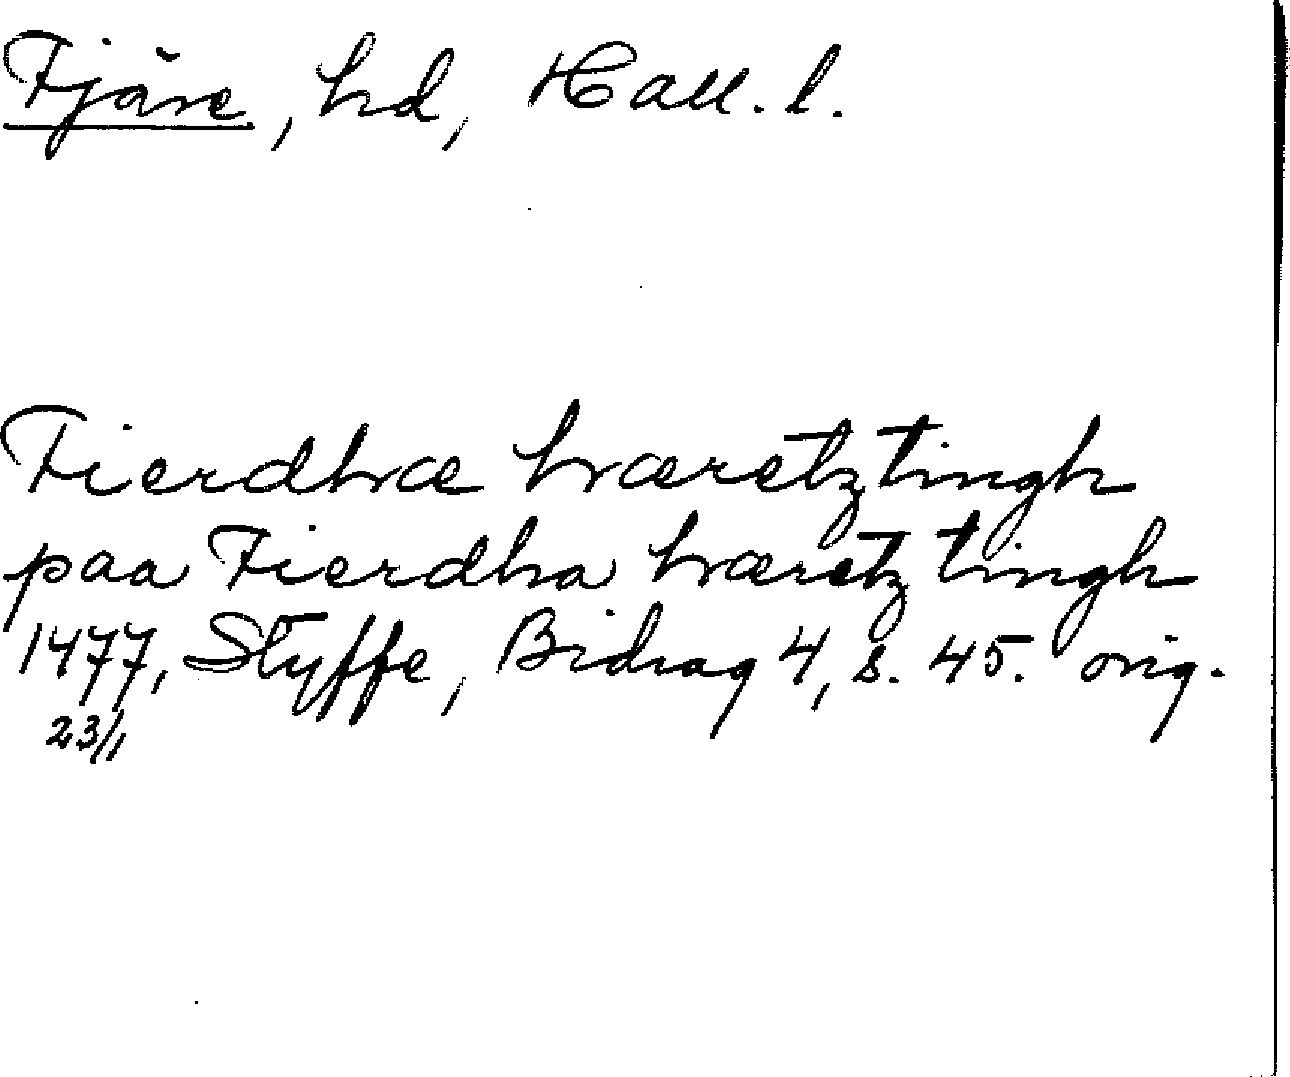 Fjäre, hd, Hall. l.
Fierdhræ hræretz tingh
paa Fierdha hræretz tingh
1477, Styffe, Bidrag 4, s. 45. orig.
23/1